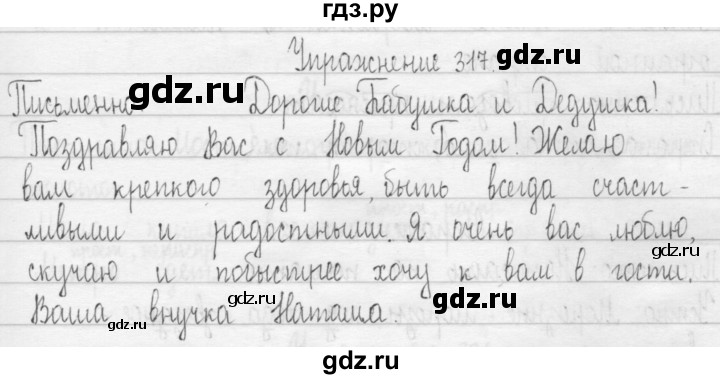 гдз.ру
Упражнение 317.
gdz.ru gdz.ru
Письменно. Дорогие Бабушка и Дедушка!
Поздравляю Вас с Новым Годом! Желаю
вам крепкого здоровья, быть всегда счаст-
ливыми и радостными. Я очень вас люблю,
gdz.ru
скучаю и побыстрее хочу к вам в гости.
gdz.ru gdz.ru
Ваша внучка Наташа.
gdz.ru
gdz.ru